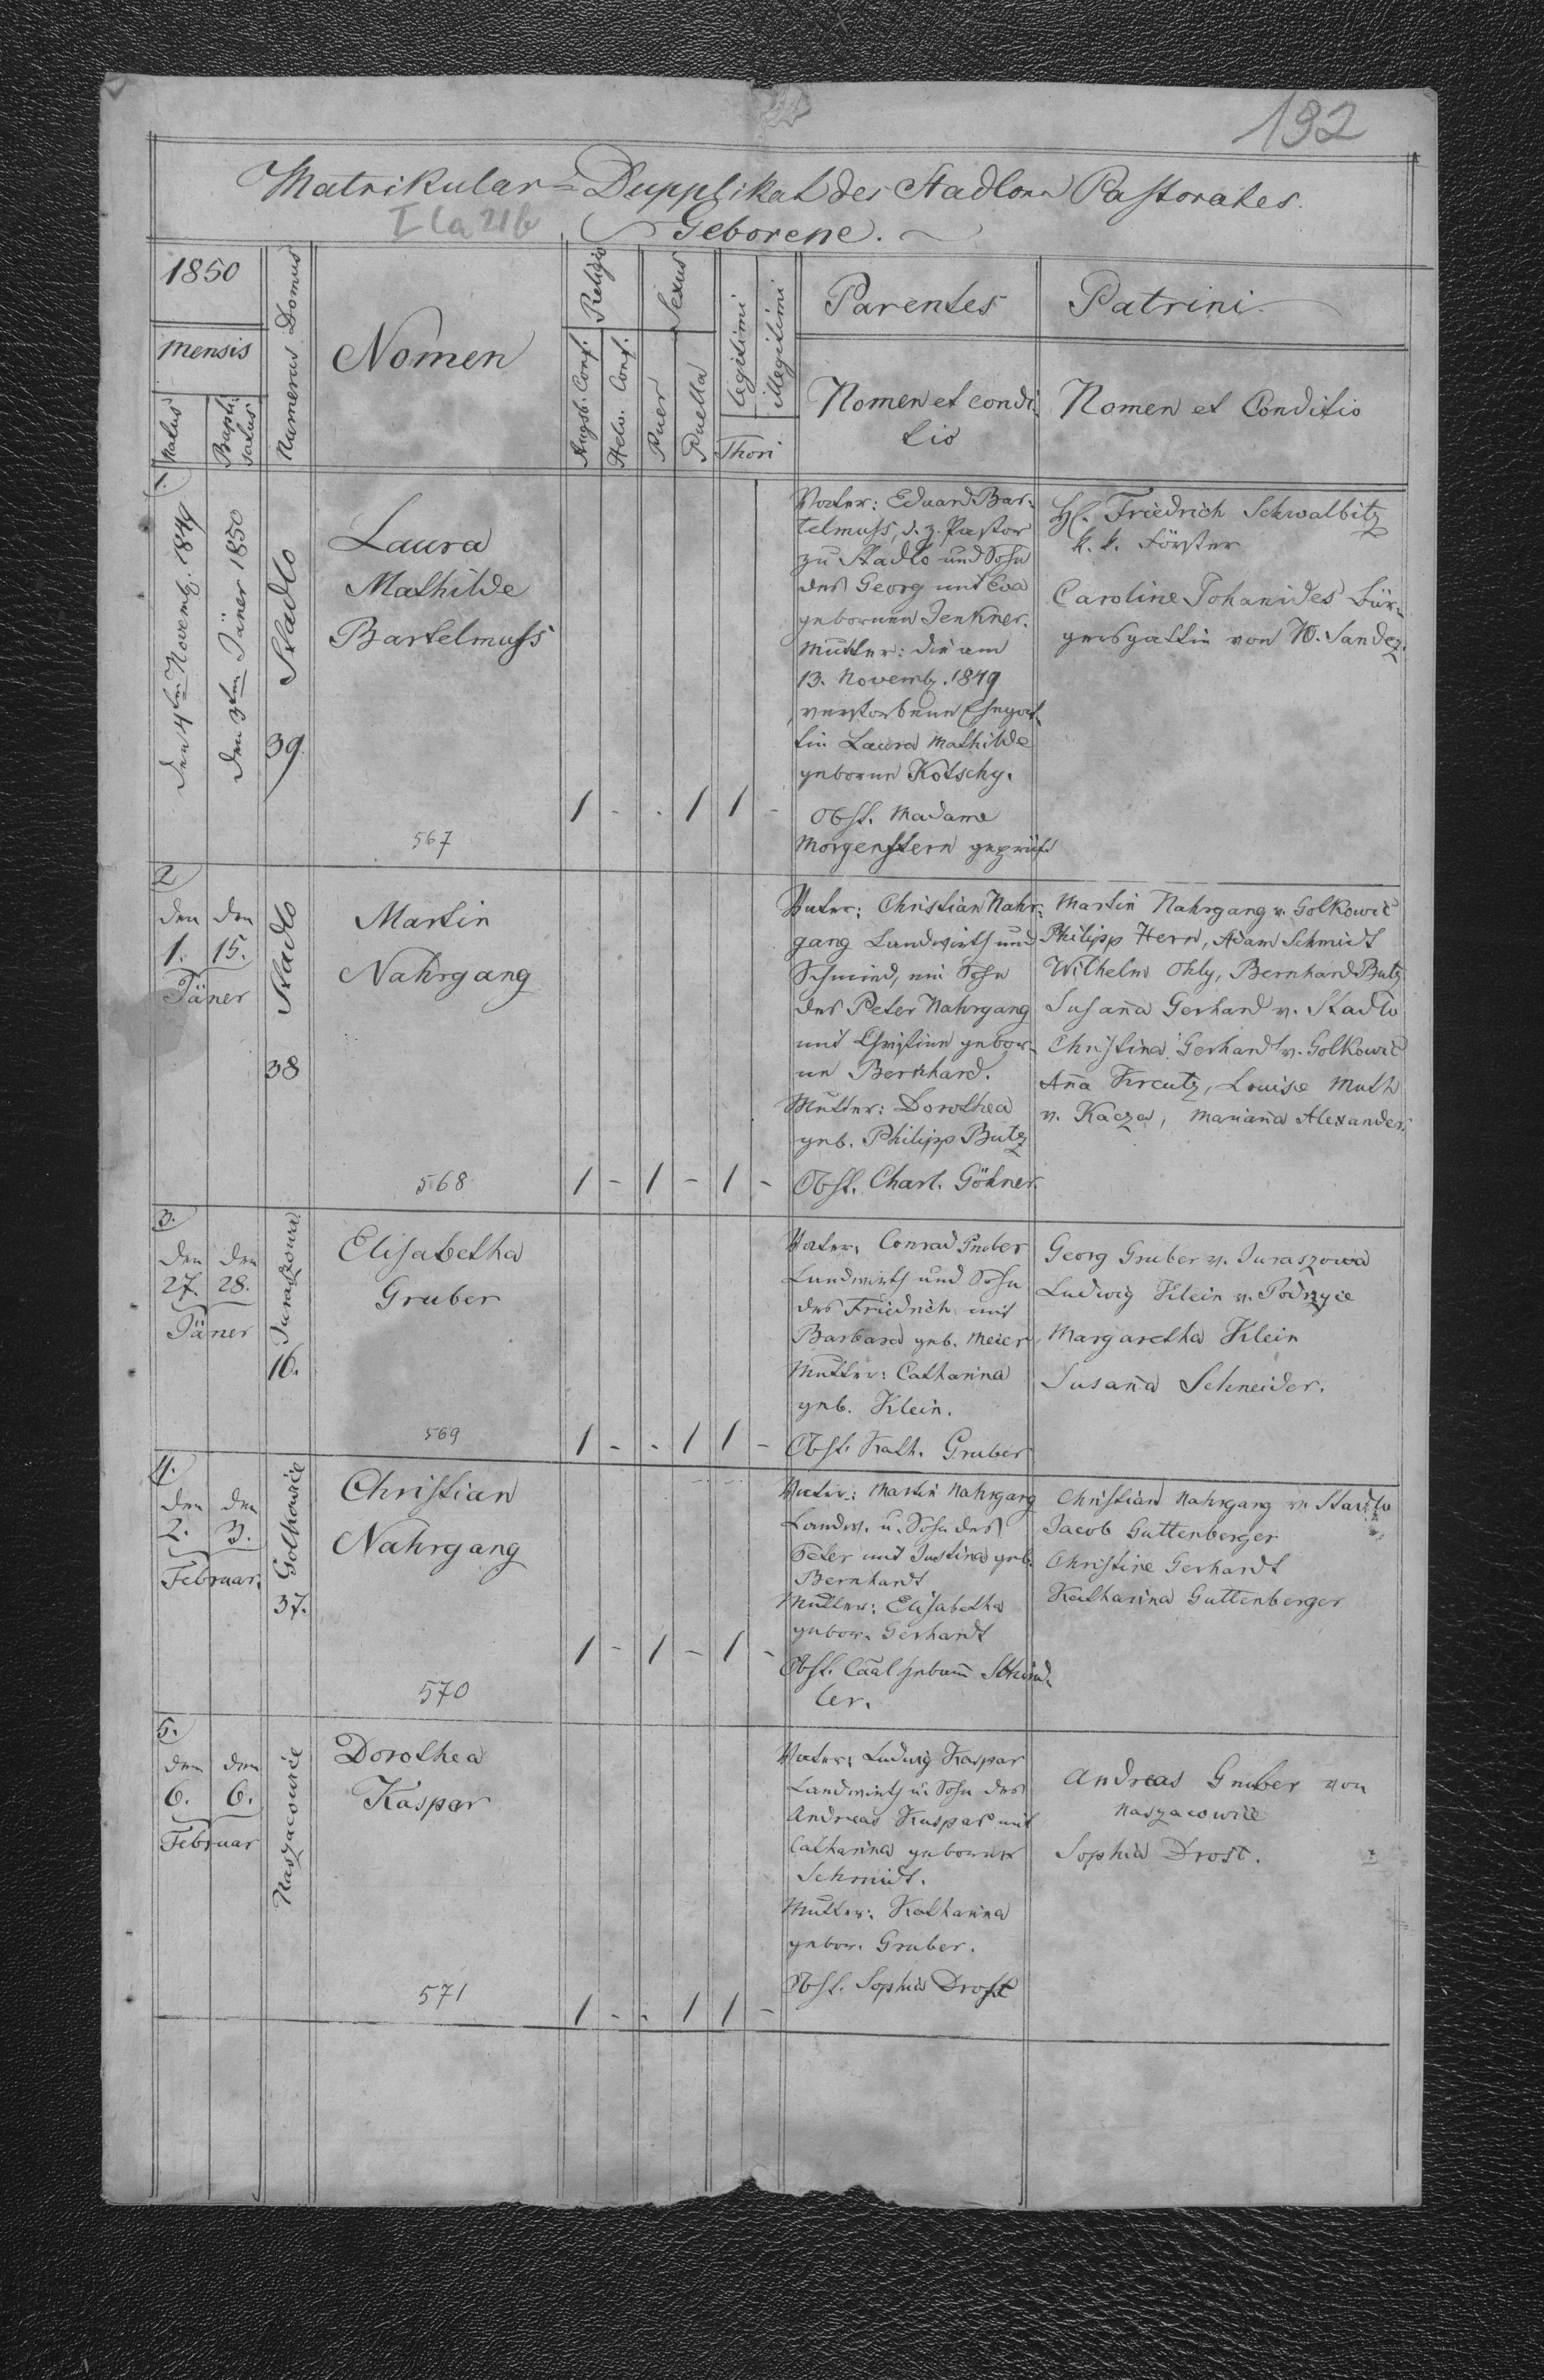 192
Matrikular-Dupplikat des Stadloer Pastorates.
I Ca 21b
Geborene.
1850
Mensis
Natus
Bapti-
satus
Numerus Domus
Nomen
Religio
Augsb. Conf.
Helv. Conf.
Sexus
Puer
Puella
legitimi
illegitimi
Thori
Parentes
Nomen et condi-
tio
Patrini
Nomen et Conditio
1.
den 4ten Novemb. 1849
den 3ten Jäner 1850
Stadlo
39
Laura
Mathilde
Bartelmuss
567
1 - - 1 1 -
Vater: Eduard Bar-
telmuss, d. z. Pastor
zu Stadlo und Sohn
des Georg und Eva
gebornen Jenkner.
Mutter: die am
13. Novemb. 1849
verstorbene Ehegat-
tin Laura Mathilde
geborne Kotschy.
Obst. Madame
Morgenstern geprüft
H. Friedrich Schwalbitz
k. k. Förster
Caroline Johanides Bür-
gersgattin von N. Sandez.
2
den den
1. 15.
Jäner
Stadlo
38
Martin
Nahrgang
568
1 - 1 - 1 -
Vater: Christian Nahr-
gang Landwirth und
Schmied, ein Sohn
des Peter Nahrgang
und Christine gebor-
ne Bernhard.
Mutter: Dorothea
geb. Philipp Butz
Obst. Charl. Göhner.
Martin Nahrgang v. Golkowic
Philipp Hern, Adam Schmidt
Wilhelm Ohly, Bernhard Butz
Susaña Gerhard v. Stadlo
Christina Gerhardt v. Golkowic
Aña Kreutz, Louise Muth
v. Kacza, Mariaña Alexander.
3.
den den
27. 28.
Jäner
Juraszowa
16.
Elisabetha
Gruber
569
1 - - 1 1 -
Vater: Conrad Gruber
Landwirth und Sohn
des Friedrich und
Barbara geb. Meier
Mutter: Catharina
geb. Klein.
Obst. Kath. Gruber
Georg Gruber v. Juraszowa
Ludwig Klein v. Podrzyce
Margaretha Klein
Susaña Schneider.
4.
den den
2. 3.
Februar.
Golkowice
37.
Christian
Nahrgang
570
1 - 1 - 1 -
Vater: Martin Nahrgang
Landw. u. Sohn des
Peter und Justina geb.
Bernhardt
Mutter: Elisabetha
gebor. Gerhardt
Obst.
ler.
Christian Nahrgang v. Stadlo
Jacob Guttenberger
Christine Gerhardt
Katharina Guttenberger
5.
den den
6. 6.
Februar
Naszacowice
Dorothea
Kaspar
571
1 - - 1 1 -
Vater: Ludwig Kaspar
Landwirth u. Sohn des
Andreas Kaspar und
Catharina geborner
Schmidt.
Mutter: Katharina
gebor. Gruber.
Obst. Sophia Drost
Andreas Gruber von
Naszacowice
Sophia Drost.